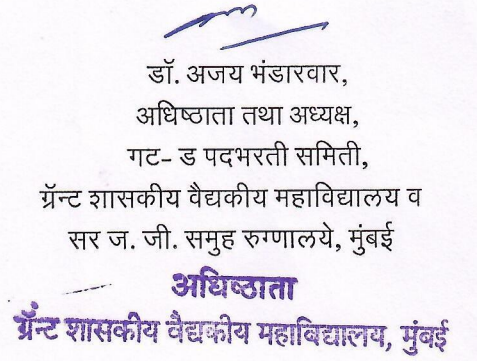 डॉ. अजय भंडारवार,
अधिष्ठाता तथा अध्यक्ष,
गट- ड पदभरती समिती,
ग्रॅन्ट शासकीय वैद्यकीय महाविद्यालय व
सर ज. जी. समुह रुग्णालये, मुंबई
अधिष्ठाता
ग्रॅन्ट शासकीय वैद्यकीय महाविद्यालय, मुंबई